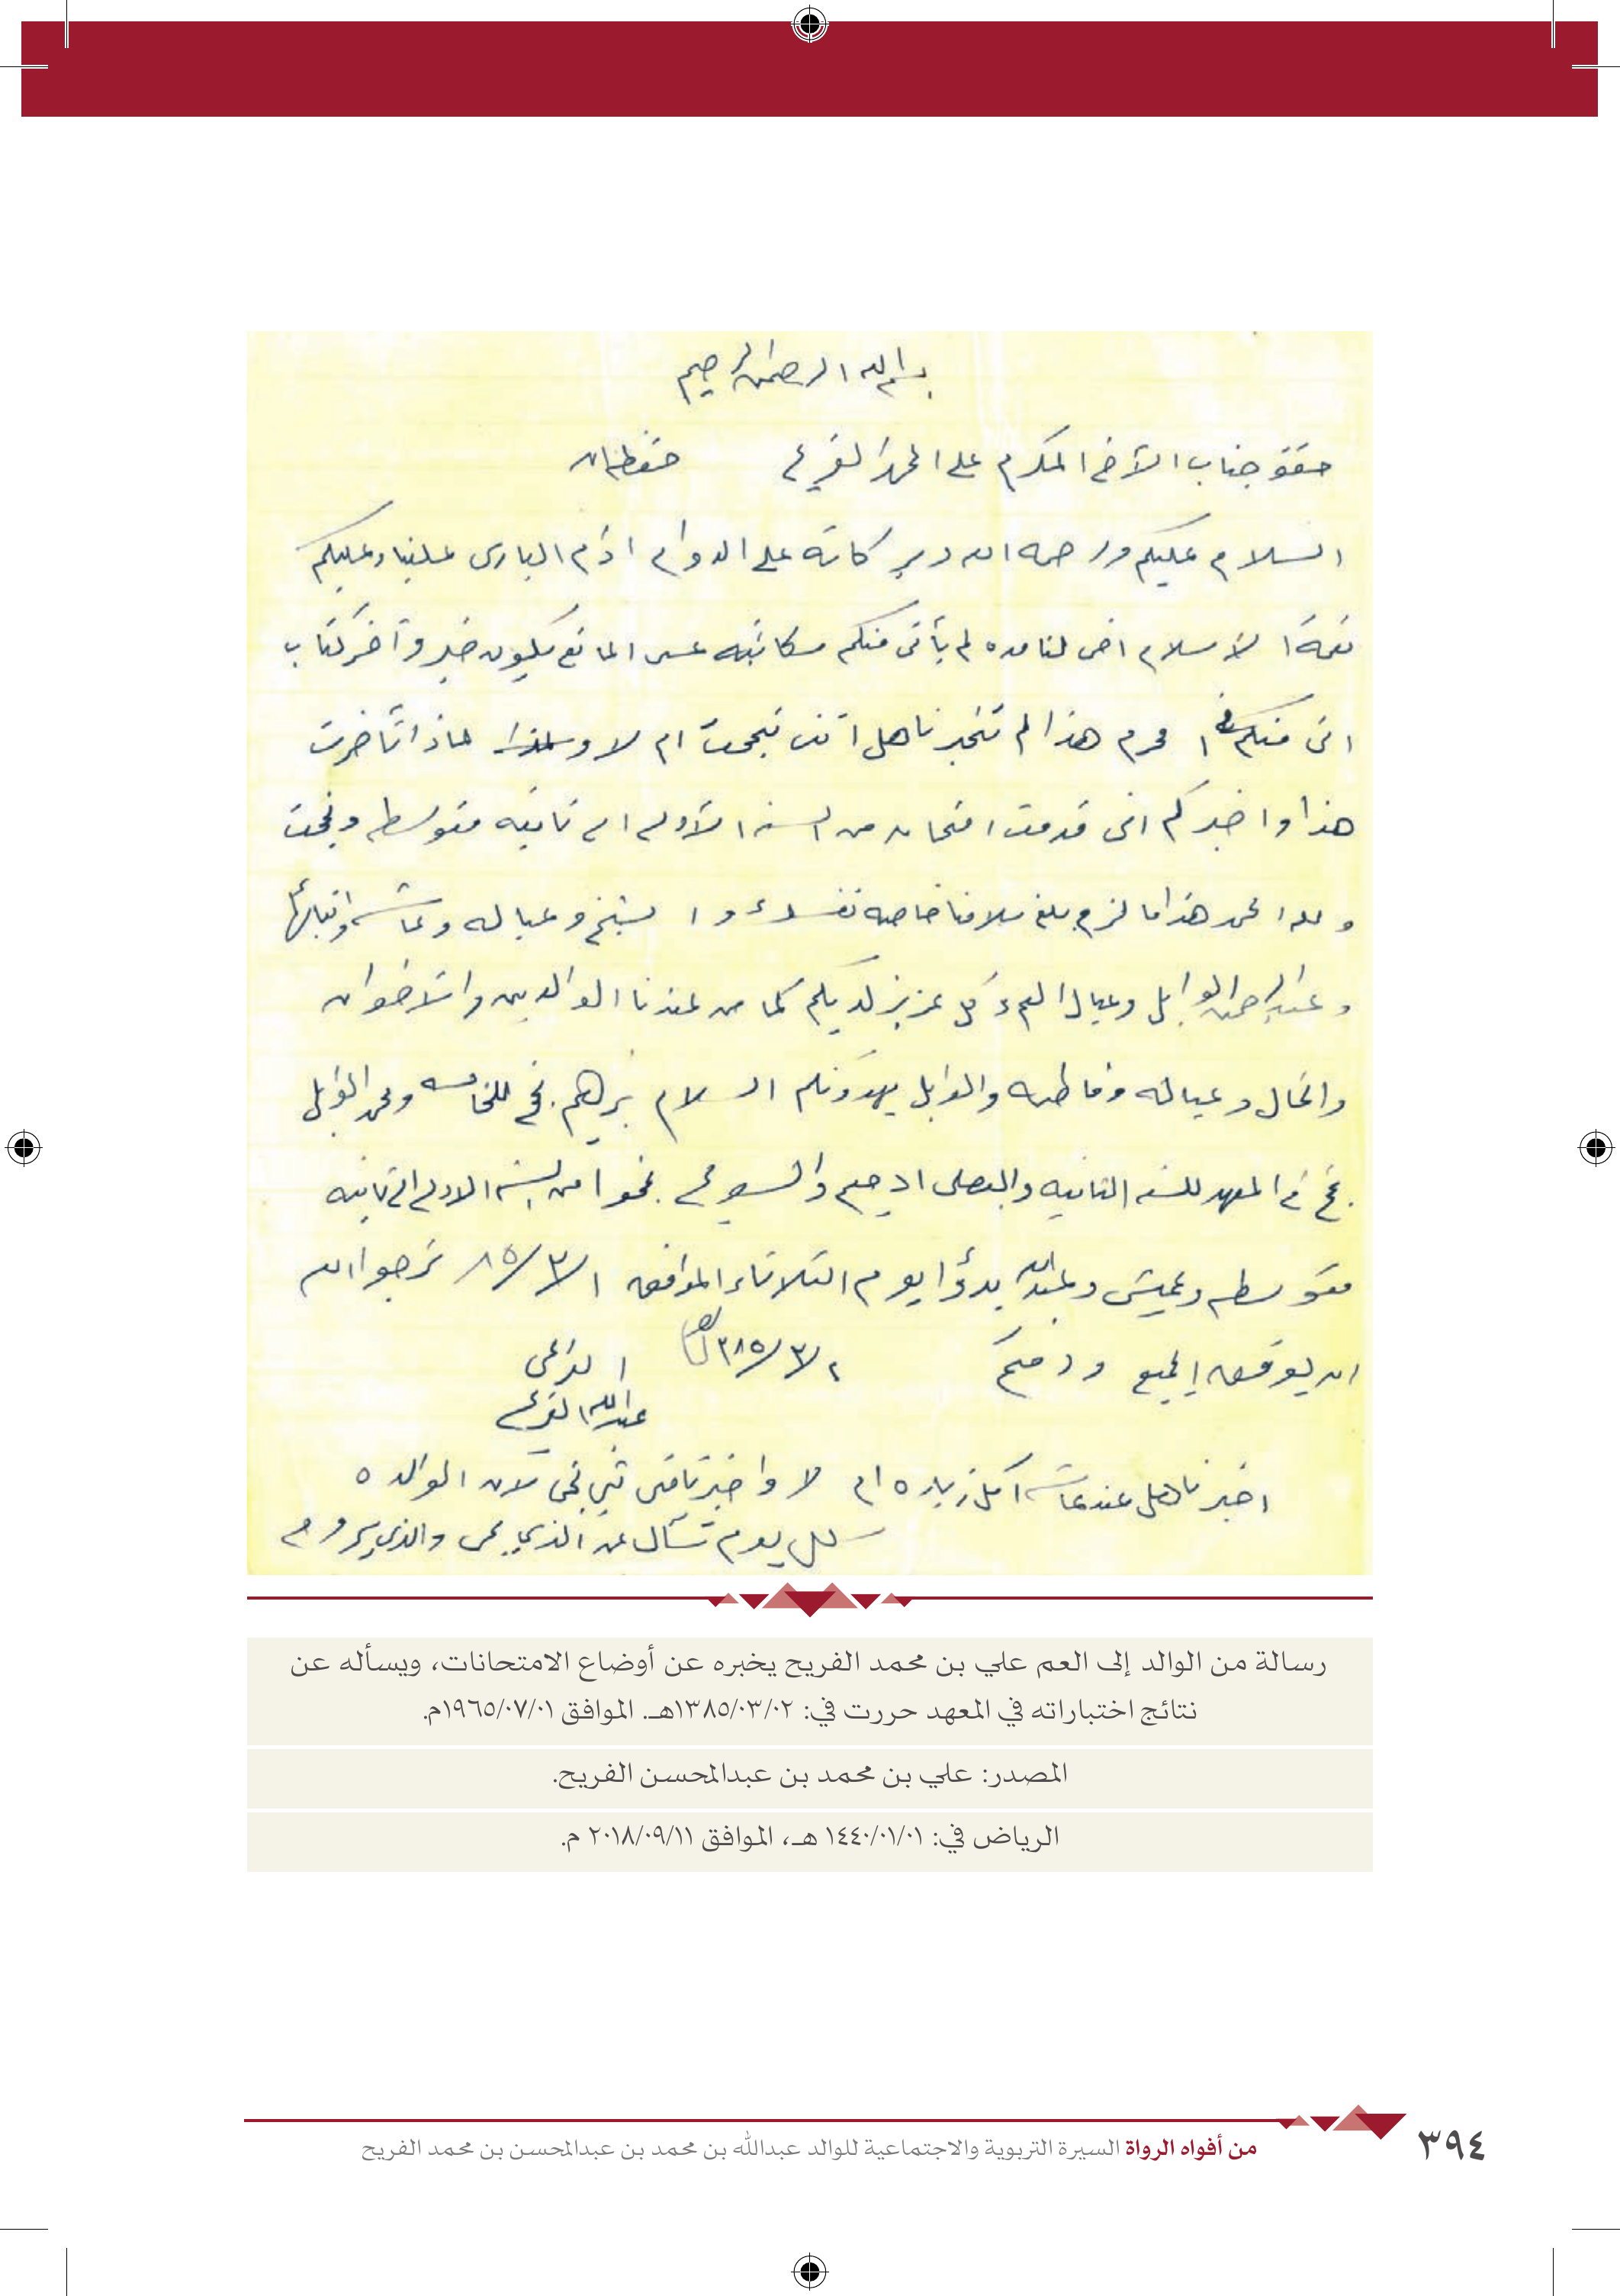 بسم الله الرحمن الرحيم
جناب الأخ المكرم علي المحمد الفريح حفظه الله
السلام عليكم ورحمه الله وبركاته على الدوام ادام البارى علينا وعليكم
نعمة الاسلام اخى لنا مده لم يأتى منكم مكاتبه عسى المانع يكون خير وآخر كتاب
اتى منكم في ١ محرم هذا لم تخبرنا هل انت نجحت ام لا ولماذا تأخرت
هذا واخبركم انى قدمت امتحان من السنه الأولى الى ثانيه متوسطه ونجحت
ولله الحمد هذا ما لزم بلغ سلامنا خاصه نفسك والشيخ وعياله وعائشه وابنائها
وعبدالرحمن الوابل وعيال العم وكل عزيز لديكم كما من عندنا الوالدين والأخوان
والخال وعياله وفاطمه والوابل يهدونكم السلام نجح للخامسه ومحمد الوابل
نجح في المعهد للسنه الثانيه نجحوا من السنه الاولى الى ثانيه
متوسطه وعبدالله بدؤا يوم الثلاثاء الموافق ٨٥/٣/١ نرجوا الله
ان يوفق الجميع ودمتم ١٣٨٥/٣/٢هـ الداعى
عبدالله الفريح
اخبرنا هل عند عائشه ام لا واخبرنا متى تجى لان الوالده
كل يوم تسأل عن الذي يجى والذي يروح
رسالة من الوالد إلى العم علي بن محمد الفريح يخبره عن أوضاع الامتحانات، ويسأله عن
نتائج اختباراته في المعهد حررت في: ١٣٨٥/٠٣/٠٢هـ. الموافق ١٩٦٥/٠٧/٠١م.
المصدر: علي بن محمد بن عبدالمحسن الفريح.
الرياض في: ١٤٤٠/٠١/٠١ هـ، الموافق ٢٠١٨/٠٩/١١ م.
من أفواه الرواة السيرة التربوية والاجتماعية للوالد عبدالله بن محمد بن عبدالمحسن بن محمد الفريح ٣٩٤